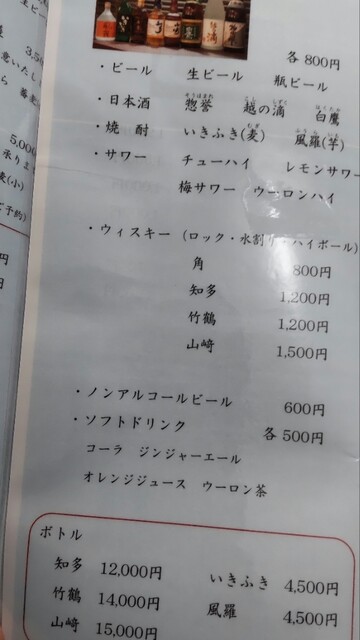 各800円
・ビール 生ビール 瓶ビール
・日本酒 惣誉 越の滴 白鷹
・焼 酎 いきふき(麦) 風羅(芋)
・サワー チューハイ レモンサワー
梅サワー ウーロンハイ
・ウィスキー (ロック・水割り・ハイボール)
角 800円
知多 1,200円
竹鶴 1,200円
山崎 1,500円
・ノンアルコールビール 600円
・ソフトドリンク 各500円
コーラ ジンジャーエール
オレンジジュース ウーロン茶
ボトル
知多 12,000円 いきふき 4,500円
竹鶴 14,000円 風羅 4,500円
山崎 15,000円